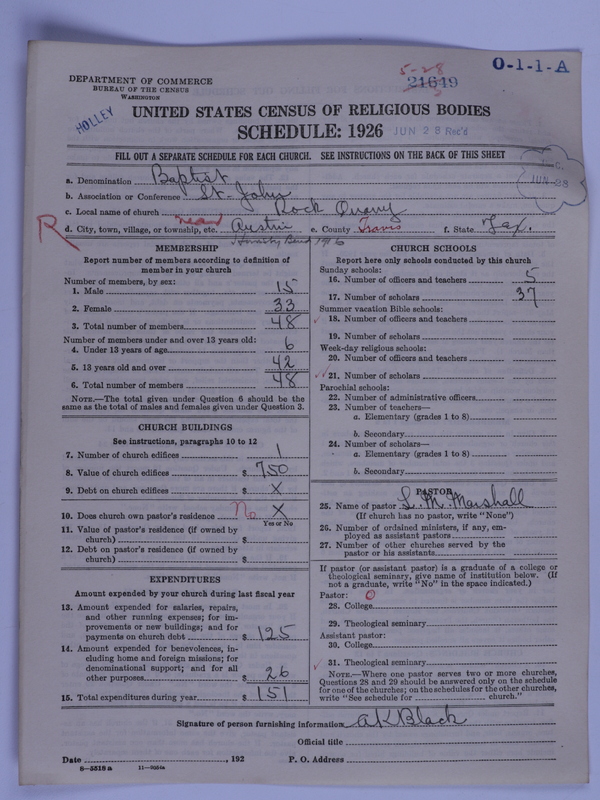 5-28
21649
O-1-1-A
DEPARTMENT OF COMMERCE
BUREAU OF THE CENSUS
WASHINGTON
HOLLEY
UNITED STATES CENSUS OF RELIGIOUS BODIES
SCHEDULE: 1926
JUN 28 Rec'd
FILL OUT A SEPARATE SCHEDULE FOR EACH CHURCH. SEE INSTRUCTIONS ON THE BACK OF THIS SHEET
JUN-28
a. Denomination Baptist
b. Association or Conference St. John
c. Local name of church Rock Quarry
R
d. City, town, village, or township, etc. near Austin e. County Travis f. State Tex.
Hornsby Bend 1916
MEMBERSHIP
Report number of members according to definition of member in your church
Number of members, by sex:
1. Male 15
2. Female 33
3. Total number of members 48
Number of members under and over 13 years old:
4. Under 13 years of age 6
5. 13 years old and over 42
6. Total number of members 48
NOTE.—The total given under Question 6 should be the same as the total of males and females given under Question 3.
CHURCH BUILDINGS
See instructions, paragraphs 10 to 12
7. Number of church edifices 1
8. Value of church edifices $ 750
9. Debt on church edifices $ X
10. Does church own pastor's residence No X
Yes or No
11. Value of pastor's residence (if owned by church) $
12. Debt on pastor's residence (if owned by church) $
EXPENDITURES
Amount expended by your church during last fiscal year
13. Amount expended for salaries, repairs, and other running expenses; for improvements or new buildings; and for payments on church debt $ 125
14. Amount expended for benevolences, including home and foreign missions; for denominational support; and for all other purposes $ 26
15. Total expenditures during year $ 151
CHURCH SCHOOLS
Report here only schools conducted by this church
Sunday schools:
16. Number of officers and teachers 5
17. Number of scholars 37
Summer vacation Bible schools:
18. Number of officers and teachers
19. Number of scholars
Week-day religious schools:
20. Number of officers and teachers
21. Number of scholars
Parochial schools:
22. Number of administrative officers
23. Number of teachers—
a. Elementary (grades 1 to 8)
b. Secondary
24. Number of scholars—
a. Elementary (grades 1 to 8)
b. Secondary
PASTOR
25. Name of pastor L. M. Marshall
(If church has no pastor, write "None")
26. Number of ordained ministers, if any, employed as assistant pastors
27. Number of other churches served by the pastor or his assistants
If pastor (or assistant pastor) is a graduate of a college or theological seminary, give name of institution below. (If not a graduate, write "No" in the space indicated.)
Pastor: O
28. College
29. Theological seminary
Assistant pastor:
30. College
31. Theological seminary
NOTE.—Where one pastor serves two or more churches, Questions 28 and 29 should be answered only on the schedule for one of the churches; on the schedules for the other churches, write "See schedule for church."
Signature of person furnishing information A K Black
Official title
Date , 192 P. O. Address
8-5518a 11-9164a